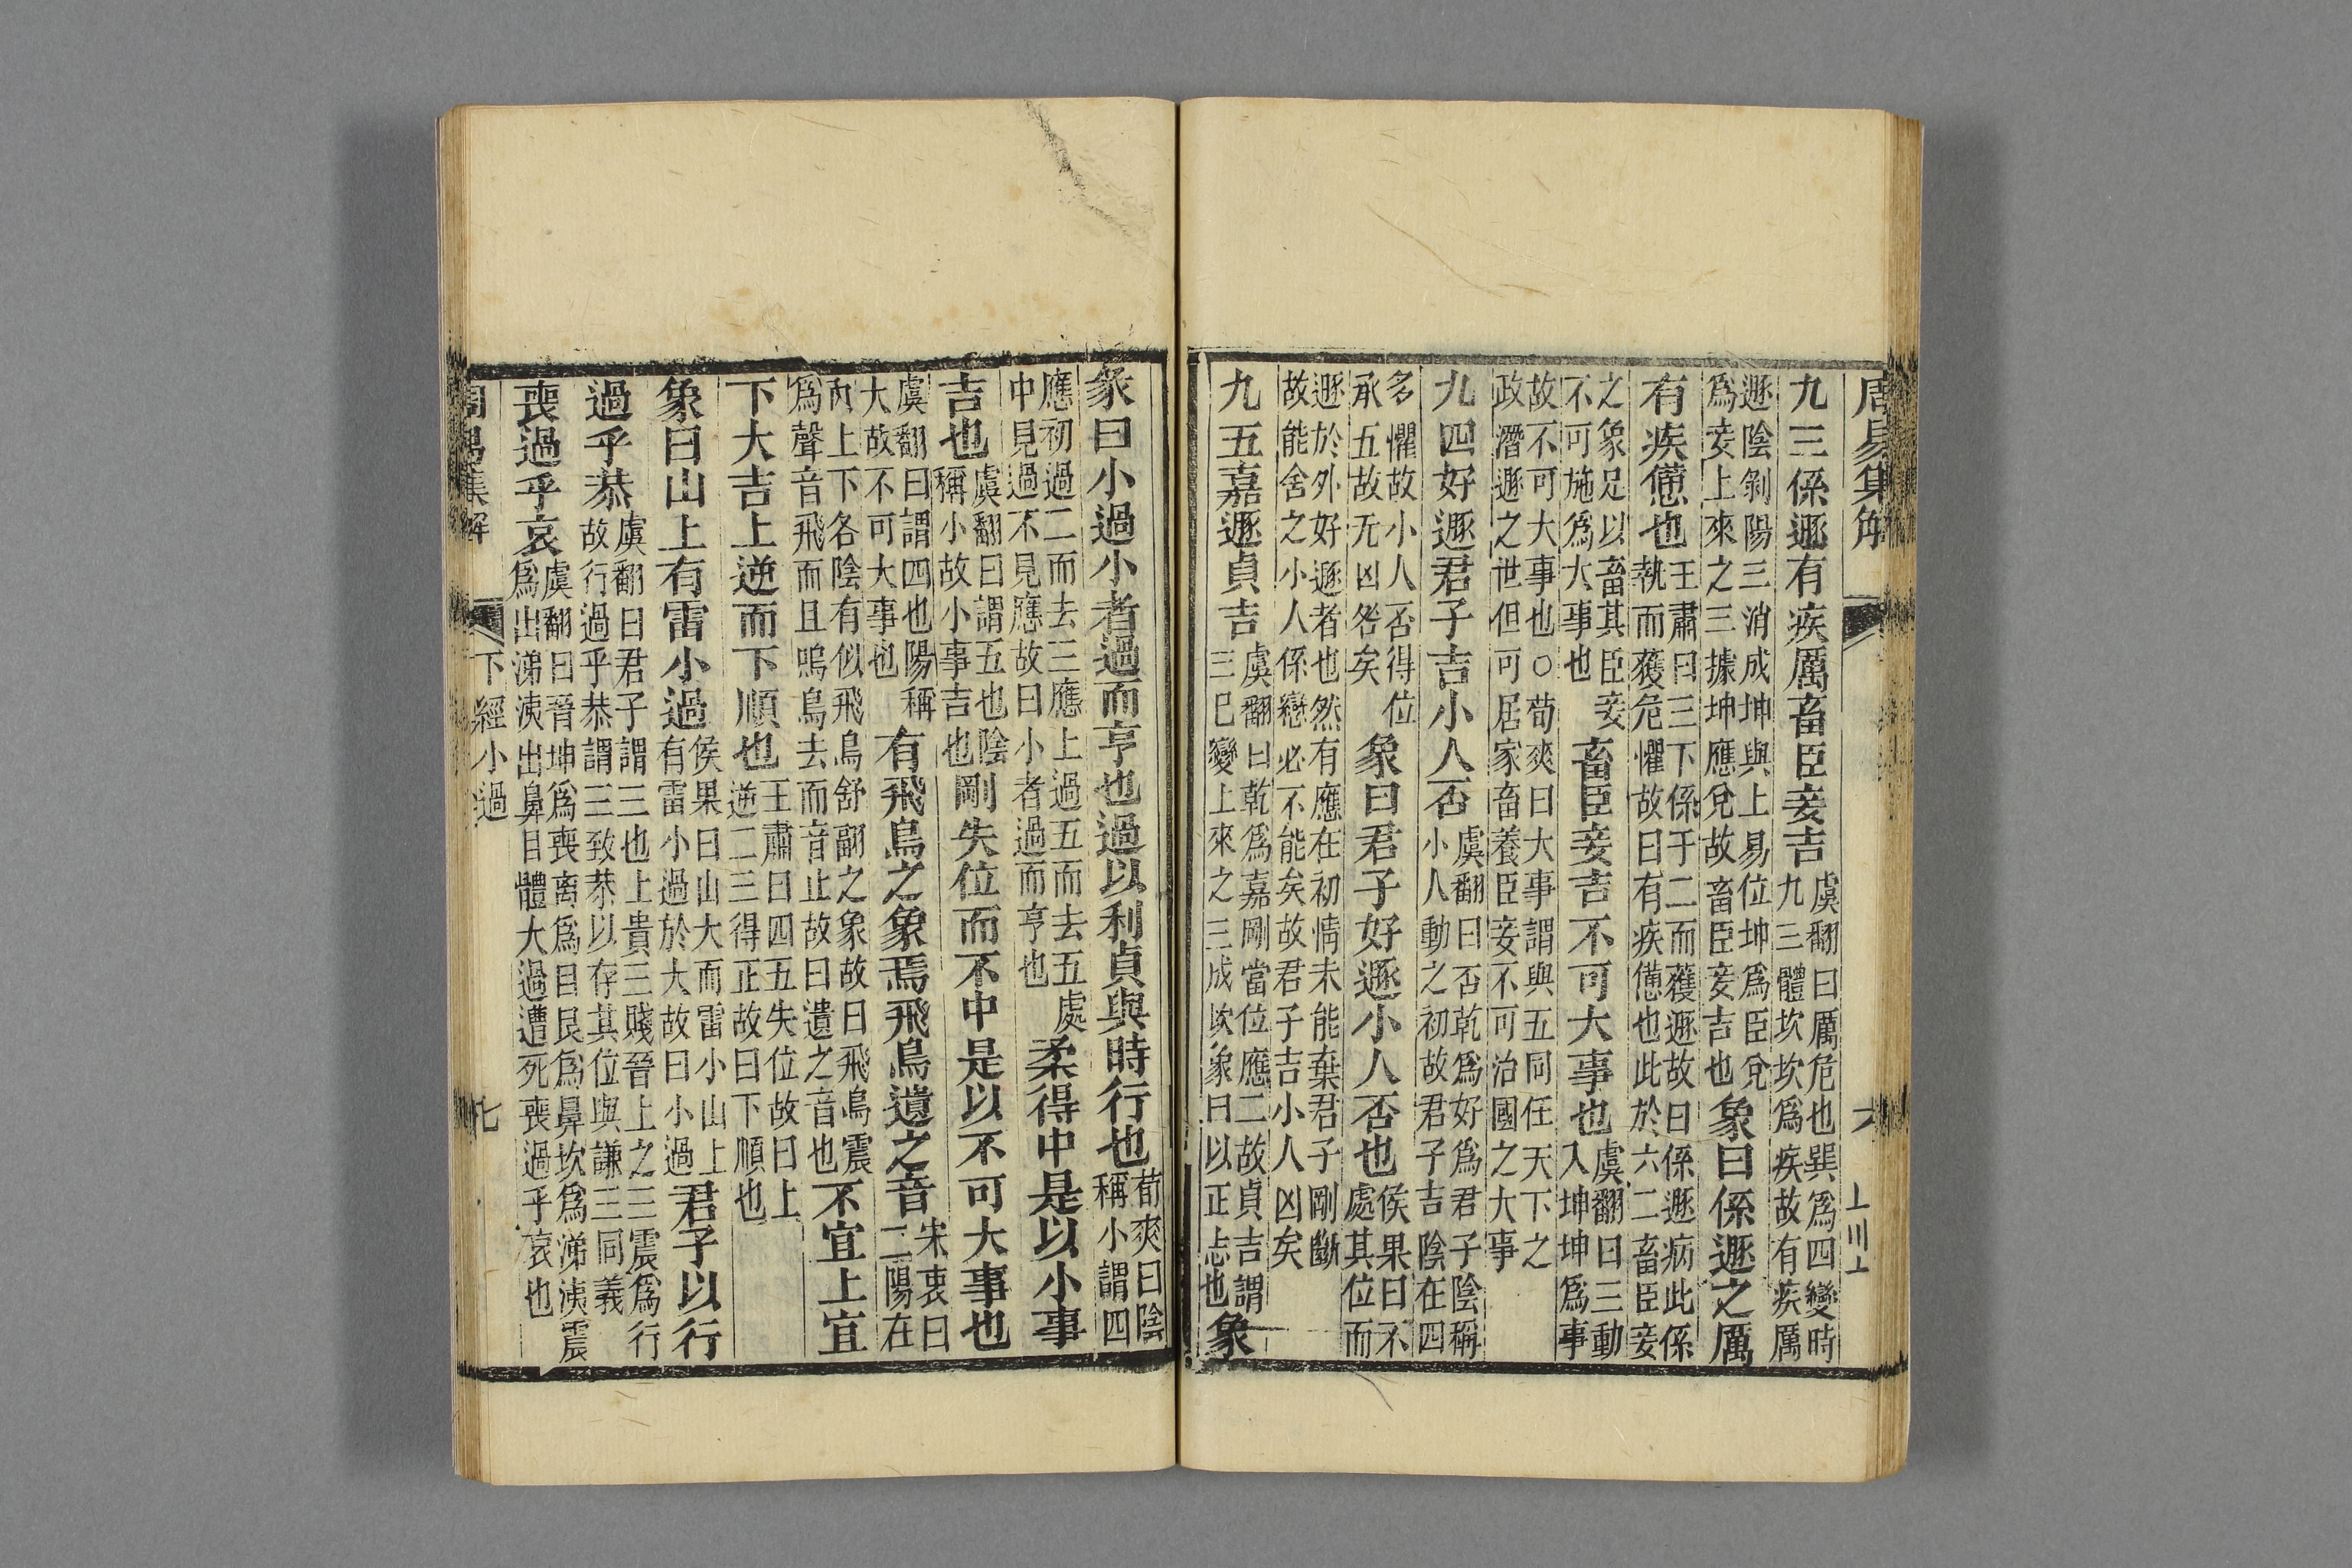 周易集解 六
九三係遯有疾厲畜臣妾吉虞翻曰厲危也巽爲四變時九三體坎坎爲疾故有疾厲
遯陰剝陽三消成坤與上易位坤爲臣兌爲妾上來之三據坤應兌故畜臣妾吉也象曰係遯之厲
有疾憊也王肅曰三下係于二而獲遯故曰係遯病此係執而獲危懼故曰有疾憊也此於六二畜臣妾
之象足以畜其臣妾不可施爲大事也畜臣妾吉不可大事也虞翻曰三動入坤坤爲事
故不可大事也○荀爽曰大事謂與五同任天下之政潛遯之世但可居家畜養臣妾不可治國之大事
九四好遯君子吉小人否虞翻曰否乾爲好爲君子陰稱小人動之初故君子吉陰在四
多懼故小人否得位承五故无凶咎矣象曰君子好遯小人否也侯果曰不處其位而
遯於外好遯者也然有應在初情未能棄君子剛斷故能舍之小人係戀必不能矣故君子吉小人凶矣
九五嘉遯貞吉虞翻曰乾爲嘉剛當位應二故貞吉謂三已變上來之三成坎象曰以正志也象
彖曰小過小者過而亨也過以利貞與時行也荀爽曰陰稱小謂四
應初過二而去三應上過五而去五處中見過不見應故曰小者過而亨也柔得中是以小事
吉也虞翻曰謂五也陰稱小故小事吉也剛失位而不中是以不可大事也
虞翻曰謂四也陽稱大故不可大事也有飛鳥之象焉飛鳥遺之音宋衷曰二陽在
內上下各陰有似飛鳥舒翮之象故曰飛鳥震爲聲音飛而且鳴鳥去而音止故曰遺之音也不宜上宜
下大吉上逆而下順也王肅曰四五失位故曰上逆二三得正故曰下順也
象曰山上有雷小過侯果曰山大而雷小山上有雷小過於大故曰小過君子以行
過乎恭虞翻曰君子謂三也上貴三賤晉上之三震爲行故行過乎恭謂三致恭以存其位與謙三同義
喪過乎哀虞翻曰晉坤爲喪离爲目艮爲鼻坎爲涕洟震爲出涕洟出鼻目體大過遭死喪過乎哀也
周易集解 下經小過 七